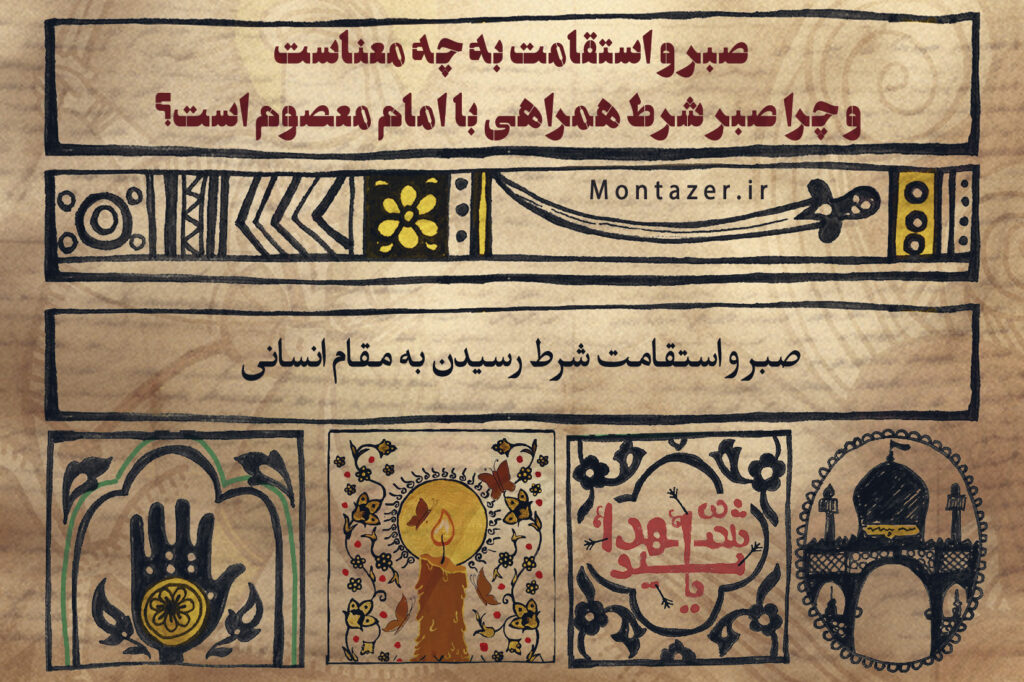 صبر و استقامت به چه معناست
و چرا صبر شرط همراهی با امام معصوم است؟
Montazer.ir
صبر و استقامت شرط رسیدن به مقام انسانی
یا سید الشهدا